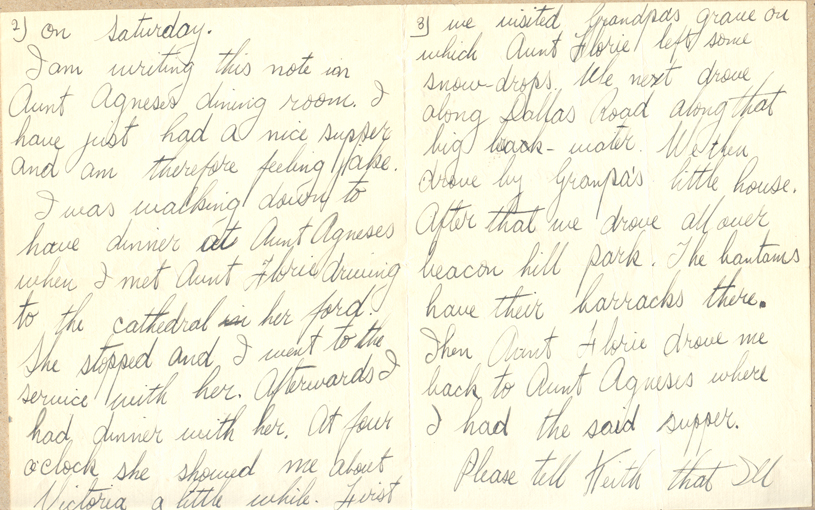 2) on Saturday.
I am writing this note in
Aunt Agneses dining room. I
have just had a nice supper
and am therefore feeling jake.
I was walking down to
have dinner at Aunt Agneses
when I met Aunt Florie driving
to the cathedral in her ford.
She stopped and I went to the
service with her. Afterwards I
had dinner with her. At four
o'clock she showed me about
Victoria a little while. First
3) we visited Grandpas grave on
which Aunt Florie left some
snow-drops. We next drove
along Dallas Road along that
big back-water. We then
drove by Granpa's little house.
After that we drove all over
beacon hill park. The bantams
have their barracks there.
Then Aunt Florie drove me
back to Aunt Agneses where
I had the said supper.
Please tell Keith that Ill